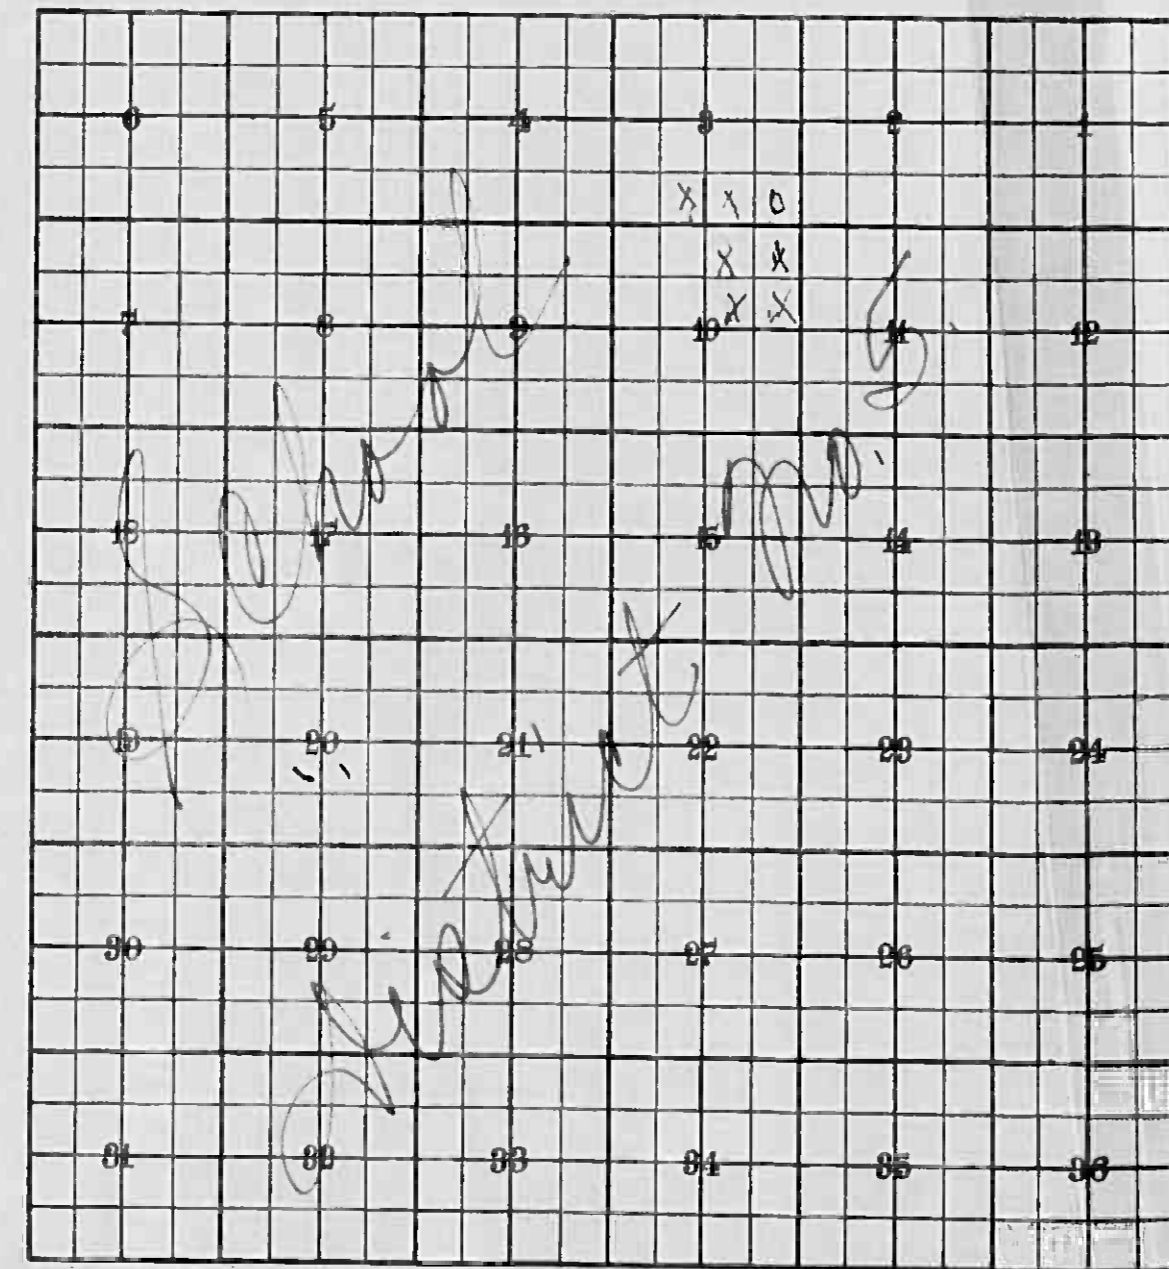 6 5 4 3 2 1
X X O
X X
X X
7 8 9 10 11 12
18 17 16 15 14 13
19 20 21 22 23 24
30 29 28 27 26 25
31 32 33 34 35 36
School
District No. 5